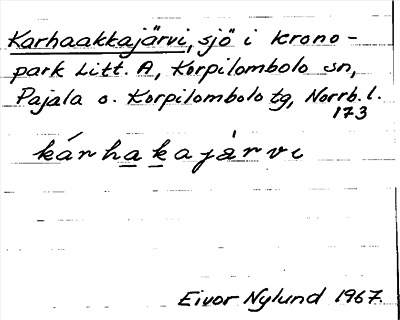 Karhaakkajärvi, sjö i krono-
park Litt. A, Korpilombolo sn,
Pajala o. Korpilombolo tg, Norrb. l.
173
kárhakajàrvi
Eivor Nylund 1967.